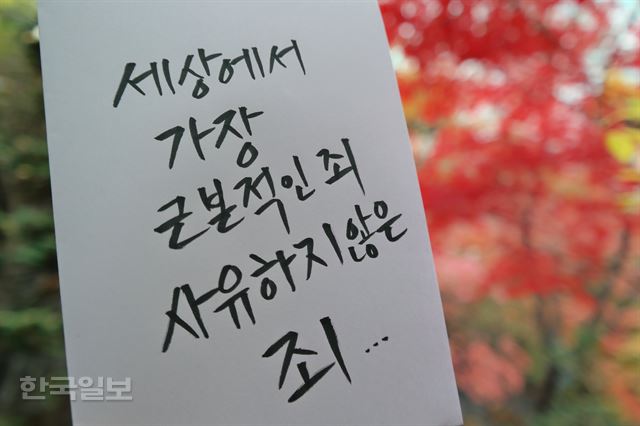 세상에서
가장
근본적인 죄
사유하지 않은
죄...
한국일보